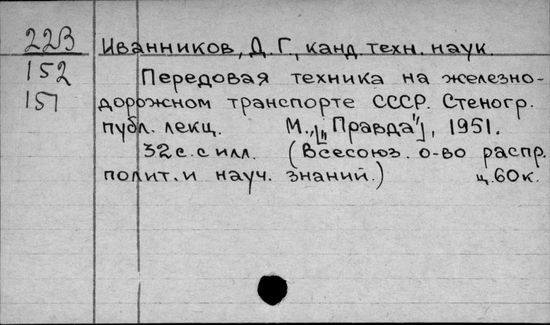 223
Иванников, Д. Г., канд. техн. наук.
152
Передовая техника на железно-
151
дорожном транспорте СССР. Стеногр.
публ. лекц. М., [„Правда"], 1951.
32 с. с илл. (Всесоюз. о-во распр.
полит. и науч. знаний.) ц. 60 к.